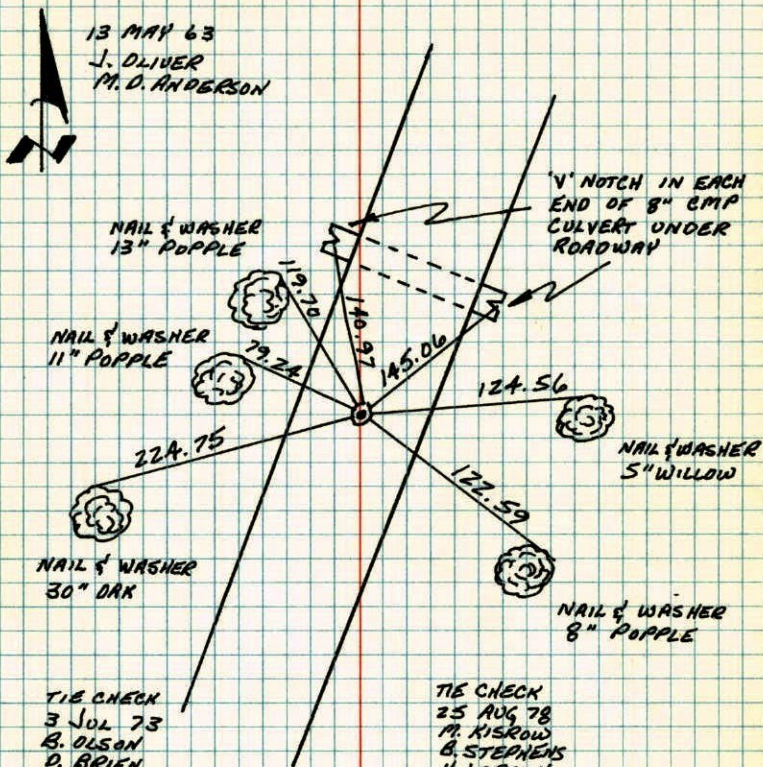 13 MAY 63
J. OLIVER
M.D. ANDERSON
N
'V' NOTCH IN EACH
END OF 8" CMP
CULVERT UNDER
ROADWAY
NAIL & WASHER
13" POPPLE
119.70
140.97
NAIL & WASHER
11" POPPLE
79.24
145.06
124.56
NAIL & WASHER
5" WILLOW
224.75
122.59
NAIL & WASHER
30" OAK
NAIL & WASHER
8" POPPLE
TIE CHECK
3 JUL 73
B. OLSON
D. BRIEN
TIE CHECK
25 AUG 78
M. KISROW
B. STEPHENS